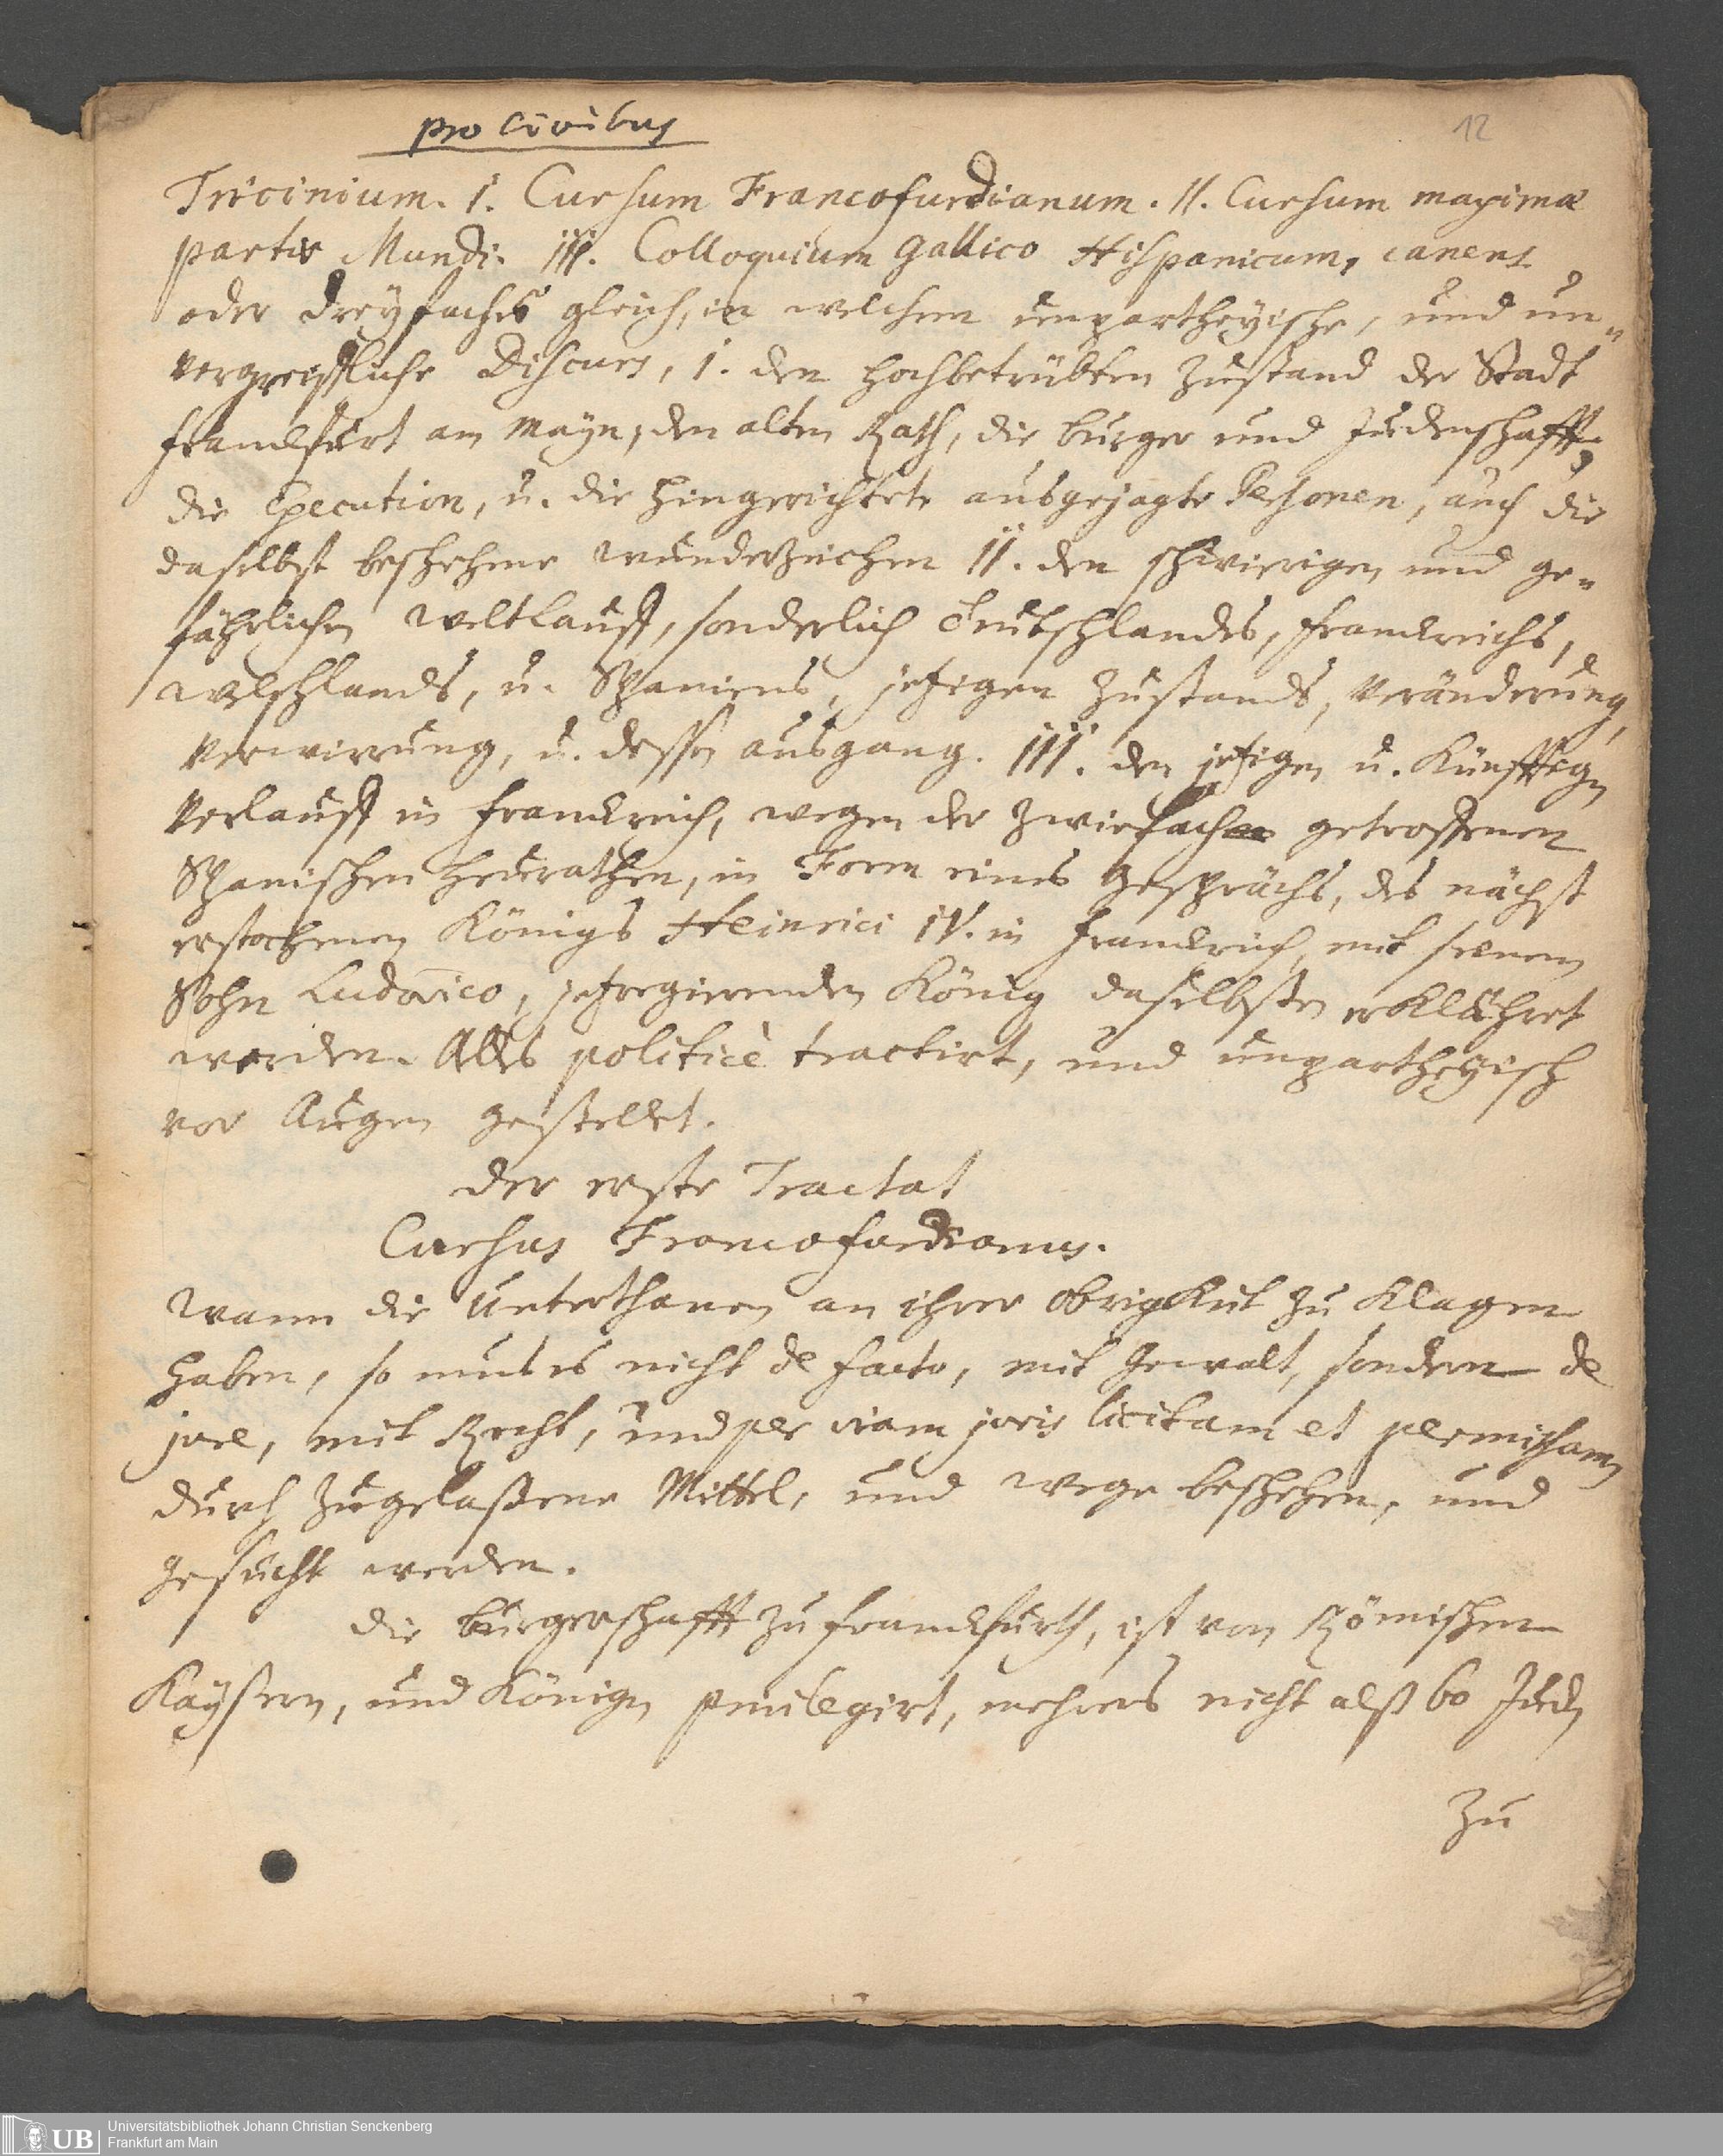 pro civibus
12
Tricinium. I. Cursum Francofurdianum. II. Cursum maximæ
partis Mundi. III. Colloquium Gallico Hispanicum, canens
oder dreyfaches gleich, in welchem unpartheyische, und un„
vergreiffliche Discurs, 1. den hochbetrübten Zustand der Stadt
franckfurt am Mayn, den alten Rath, die burger und Judenschafft,
die Execution, u. die hingerichtete ausgejagte Personen, auch die
daselbst beschehene wunderzeichen II. den schwierigen und ge„
fährlichen weltlauff, sonderlich Teutschlandes, franckreichs,
welschlands, u. Spaniens, jetzigen Zustands, Veränderung,
Verwirrung, u. dessen ausgang. III. den jetzigen u. Künfftigen
Verlauff in franckreich, wegen der zwiefachen getroffenen
Spanischen heurathen, in Form eines gesprächs, des nächst
erstochenen Königs Heinrici IV. in franckreich, mit seinem
Sohn Ludovico, jetzregierenden König daselbsten erklähret
werden. Alles politicè tractirt, und unpartheyisch
vor Augen gestellet.
der erste Tractat
Cursus Francofurdianus.
Wann die Unterthanen an ihrer obrigkeit zu klagen
haben, so mus es nicht de facto, mit gewalt, sondern de
jure, mit Recht, und per viam juris licitam et permissam
durch zugelaßene Mittel, und wege beschehen, und
gesucht werden.
die burgerschafft zu franckfurth, ist von Römischen
Kaysern, und Königen privilegirt, mehrers nicht alß 60 Juden
zu
UB
Universitätsbibliothek Johann Christian Senckenberg
Frankfurt am Main